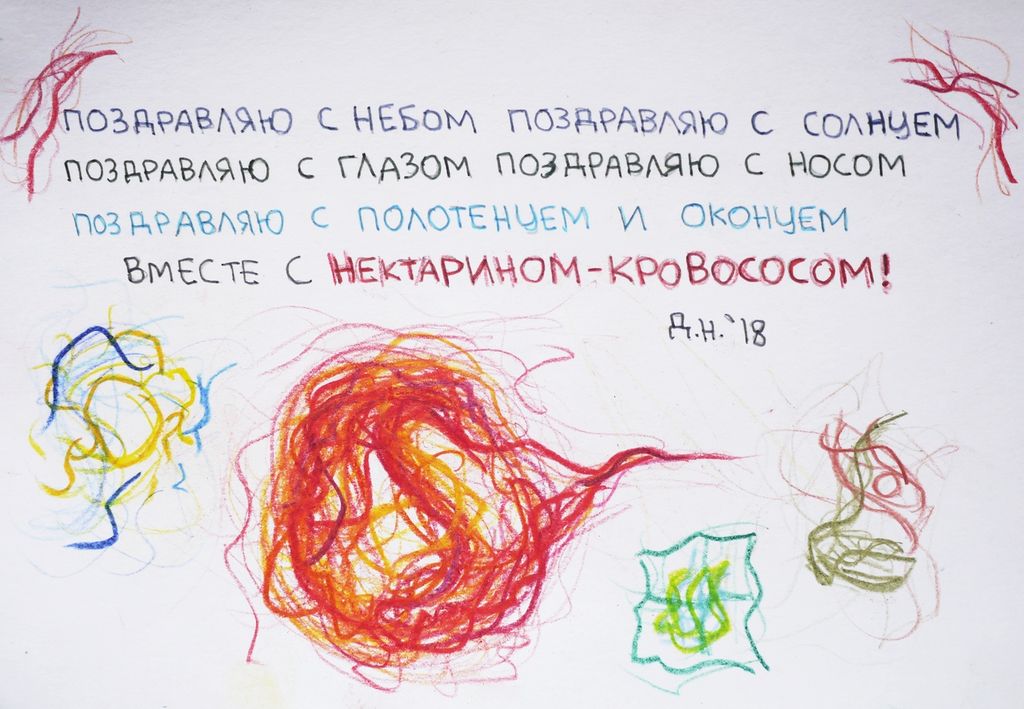 ПОЗДРАВЛЯЮ С НЕБОМ ПОЗДРАВЛЯЮ С СОЛНЦЕМ
ПОЗДРАВЛЯЮ С ГЛАЗОМ ПОЗДРАВЛЯЮ С НОСОМ
ПОЗДРАВЛЯЮ С ПОЛОТЕНЦЕМ И ОКОНЦЕМ
ВМЕСТЕ С НЕКТАРИНОМ-КРОВОСОСОМ!
Д.Н.`18